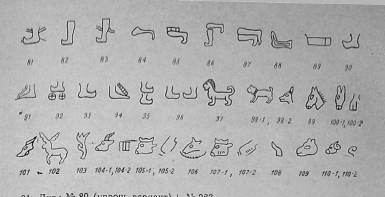 81 82 83 84 85 86 87 88 89 90
91 92 93 94 95 96 97 98-1, 98-2 99 100-1, 100-2
101 102 103 104-1, 104-2 105-1, 105-2 106 107-1, 107-2 108 109 110-1, 110-2
№ 80